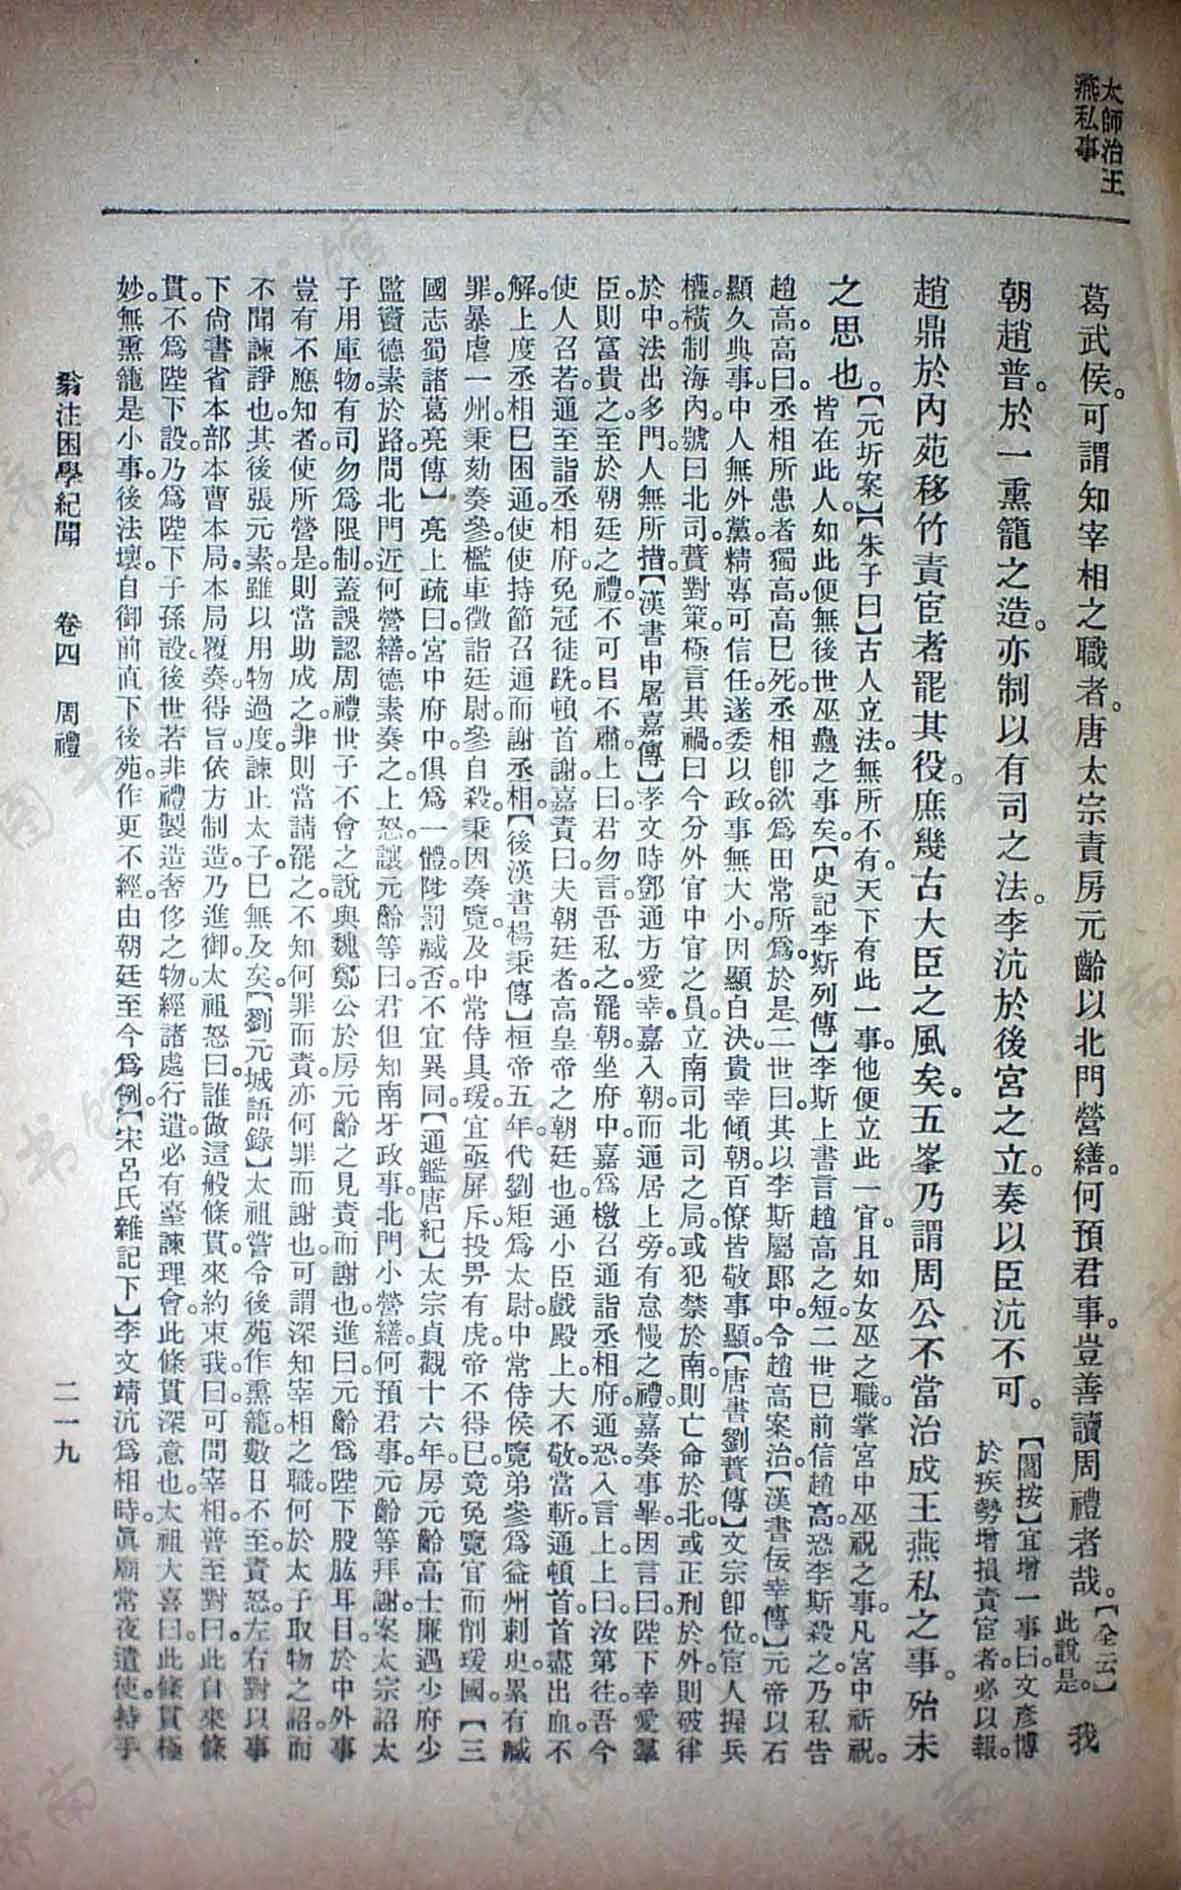 太師治王
燕私事
葛武侯。可謂知宰相之職者。唐太宗責房元齡以北門營繕。何預君事。豈善讀周禮者哉。【全云】此說是。我
朝趙普。於一熏籠之造。亦制以有司之法。李沆於後宮之立。奏以臣沆不可。【閻按】宜增一事曰。文彥博於疾勢增損責宦者。必以報。
趙鼎於內苑移竹責宦者罷其役。庶幾古大臣之風矣。五峯乃謂周公不當治成王燕私之事。殆未
之思也。【元圻案】【朱子曰】古人立法。無所不有。天下有此一事。他便立此一官。且如女巫之職。掌宮中巫祝之事。凡宮中祈祝。
皆在此人。如此便無後世巫蠱之事矣。【史記李斯列傳】李斯上書言趙高之短。二世已前信趙高。恐李斯殺之。乃私告
趙高。高曰。丞相所患者獨高。高已死。丞相卽欲爲田常所爲。於是二世曰。其以李斯屬郎中令。趙高案治。【漢書佞幸傳】元帝以石
顯久典事。中人無外黨。精專可信任。遂委以政事。無大小。因顯白決。貴幸傾朝。百僚皆敬事顯。【唐書劉蕡傳】文宗卽位。宦人握兵
權。橫制海內。號曰北司。蕡對策。極言其禍。曰今分外官中官之員。立南司北司之局。或犯禁於南。則亡命於北。或正刑於外。則破律
於中。法出多門。人無所措。【漢書申屠嘉傳】孝文時鄧通方愛幸。嘉入朝。而通居上旁。有怠慢之禮。嘉奏事畢。因言曰。陛下幸愛羣
臣。則富貴之。至於朝廷之禮。不可㠯不肅。上曰。君勿言。吾私之。罷朝坐府中。嘉爲檄召通詣丞相府。通恐。入言上。上曰。汝第往。吾今
使人召若。通至詣丞相府。免冠徒跣。頓首謝。嘉責曰。夫朝廷者。高皇帝之朝廷也。通小臣戲殿上。大不敬。當斬。通頓首。首盡出血。不
解。上度丞相已困通。使使持節召通而謝丞相。【後漢書楊秉傳】桓帝五年。代劉矩爲太尉。中常侍侯覽弟參爲益州刺史。累有臧
罪。暴虐一州。秉劾奏參。檻車徵詣廷尉。參自殺。秉因奏覽。及中常侍具瑗。宜亟屏斥。投畀有虎。帝不得已。竟免覽官而削瑗國。【三
國志蜀諸葛亮傳】亮上疏曰。宮中府中。俱爲一體。陟罰臧否。不宜異同。【通鑑唐紀】太宗貞觀十六年。房元齡高士廉遇少府少
監竇德素於路。問北門近何營繕。德素奏之。上怒。讓元齡等曰。君但知南牙政事。北門小營繕。何預君事。元齡等拜謝。案太宗詔太
子用庫物。有司勿爲限制。蓋誤認周禮世子不會之說。與魏鄭公於房元齡之見責而謝也。進曰。元齡爲陛下股肱耳目。於中外事
豈有不應知者。使所營是。則當助成之。非則當請罷之。不知何罪而責。亦何罪而謝也。可謂深知宰相之職。何於太子取物之詔。而
不聞諫諍也。其後張元素。雖以用物過度。諫止太子。已無及矣。【劉元城語錄】太祖嘗令後苑作熏籠。數日不至。責怒。左右對以事
下尙書省。本部本曹本局。本局覆奏。得旨。依方制造。乃進御。太祖怒曰。誰做這般條貫。來約束我。曰可問宰相。普至對曰。此自來條
貫。不爲陛下設。乃爲陛下子孫設。後世若非禮製造奢侈之物。經諸處行遣。必有臺諫理會。此條貫深意也。太祖大喜曰。此條貫極
妙。無熏籠是小事。後法壞。自御前直下後苑。作更不經由朝廷。至今爲例。【宋呂氏雜記下】李文靖沆爲相時。眞廟常夜遣使。持手
翁注困學紀聞　卷四　周禮　二一九